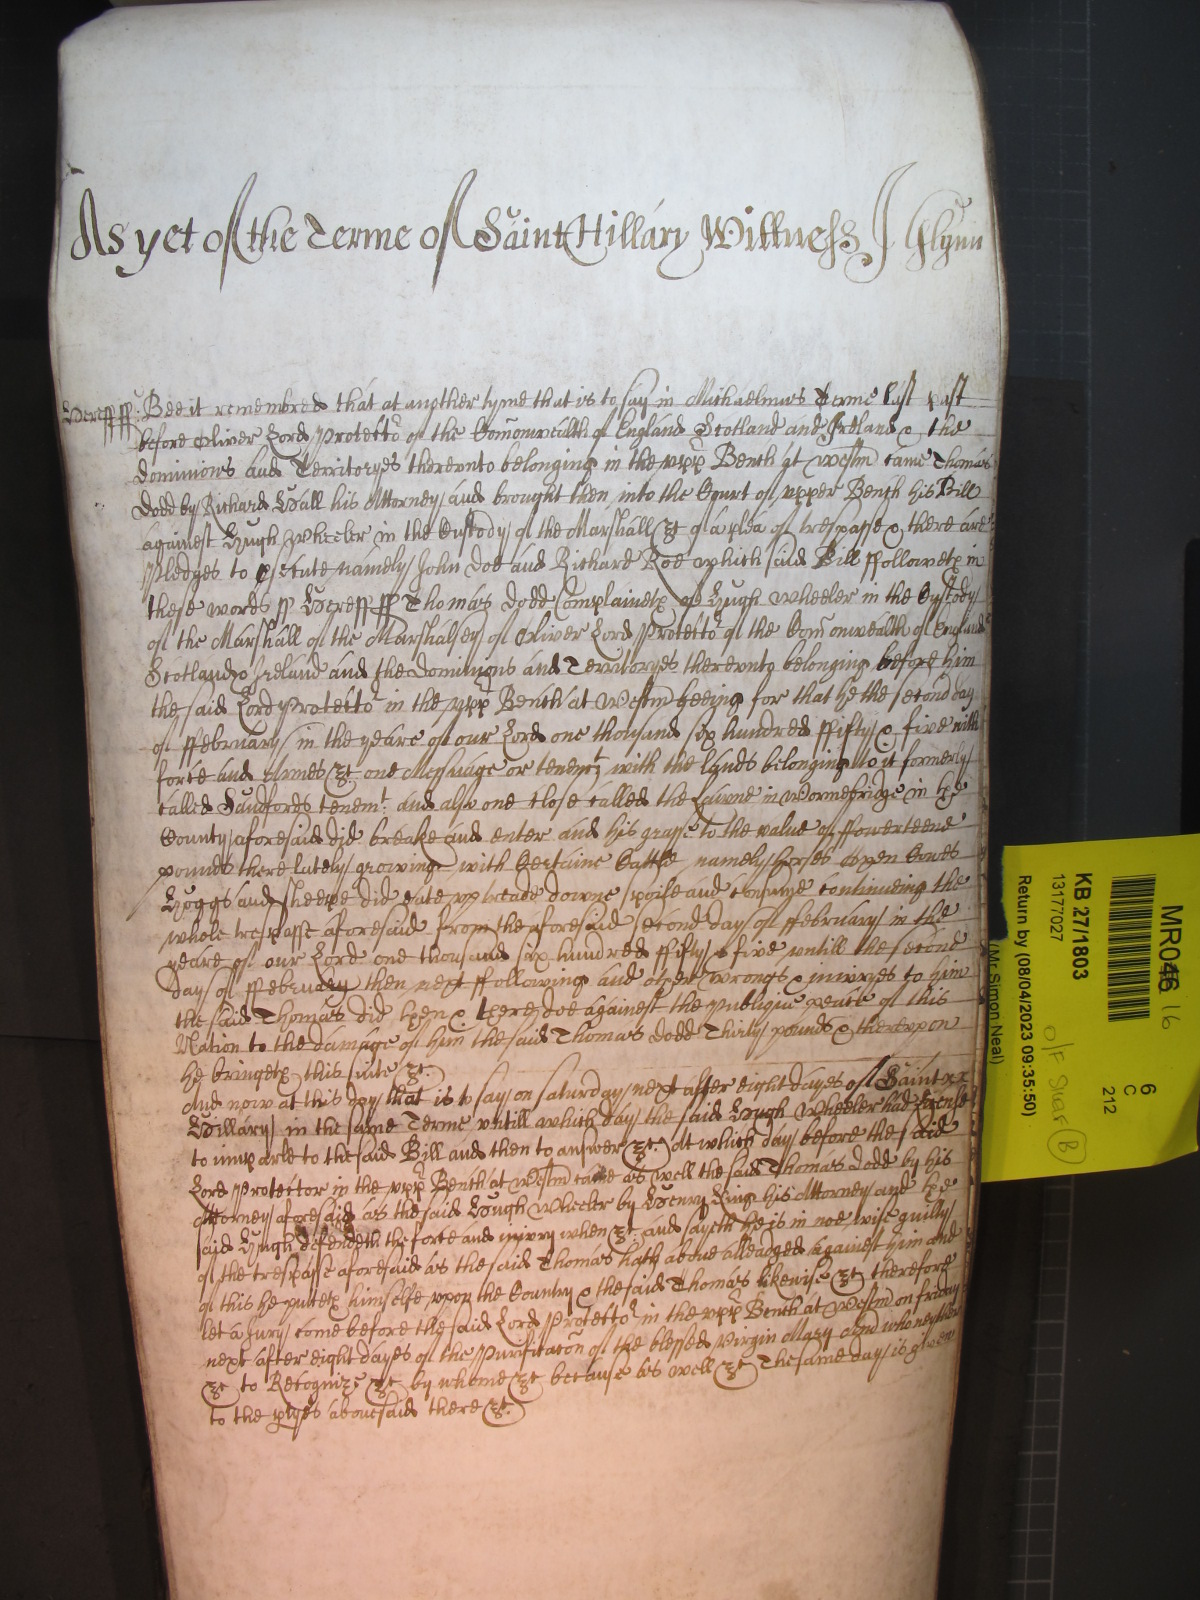 As yet of the Terme of Saint Hillary Wittness J Glynn
Hereff ss Bee it remembred that at another tyme that is to say in Michaelmas Terme last past
before Oliver Lord Protector of the Comonwealth of England Scotland and Ireland & the
dominions and Territoryes therevnto belonging in the vpp Bench at Westm came Thomas
Dodd by Richard Hall his Attorney and brought then into the Court of vpper Bench his Bill
against Hugh Wheeler in the Custody of the Marshall &c of a plea of trespasse & there are
Pledges to psecute namely John Doe and Richard Roe which said Bill ffolloweth in
these words ss Hereff ss Thomas Dodd Complaineth of Hugh Wheeler in the Custody
of the Marshall of the Marshalsey of Oliver Lord Protector of the Comonwealth of England
Scotland & Ireland and the dominions and Territoryes therevnto belonging before him
the said Lord Protector in the vpp Bench at Westm beeing for that he the second day
of ffebruary in the yeare of our Lord one thousand six hundred ffifty & five with
force and Armes &c one Messuage or tenemt with the lands belonging to it formerly
called Sandfords tenemt and also one close called the Lawne in Wormebridge in the
County aforesaid did breake and enter and his grasse to the value of ffowerteene
pounds there lately growing with Certaine Cattle namely horses Oxen Cowes
Hoggs and sheepe did eate vp treade downe spoile and consume continueing the
whole trespasse aforesaid from the aforesaid second day of ffebruary in the
yeare of our Lord one thousand six hundred ffifty & five vntill the second
day of ffebruary then next ffollowing and other wrongs & iniuryes to him
the said Thomas did then & there doe against the publique peace of this
Nation to the damage of him the said Thomas Dodd Thirty pounds & therevpon
he bringeth this suite &c
And now at this day that is to say on saturday next after eight dayes of Saint
Hillary in the same Terme vntill which day the said Hugh Wheeler had licence
to imparle to the said Bill and then to answer &c At which day before the said
Lord Protector in the vpp Bench at Westm came as well the said Thomas Dodd by his
Attorney aforesaid as the said Hugh Wheeler by Henry King his Attorney and the
said Hugh defendeth the force and iniury when &c and sayeth he is in noe wise guilty
of the trespasse aforesaid as the said Thomas hath above alleadged against him and
of this he putteth himselfe vpon the Country & the said Thomas likewise &c therefore
let a Jury come before the said Lord Protector in the vpp Bench at Westm on friday
next after eight dayes of the Purificacon of the blessed Virgin Mary And who neyther
&c to Recognize &c by whome &c because as well &c The same day is given
to the ptyes abouesaid there &c
MR046 16
6
C
212
KB 27/1803
13177027
Return by (08/04/2023 09:35:50)
(Mr Simon Neal)